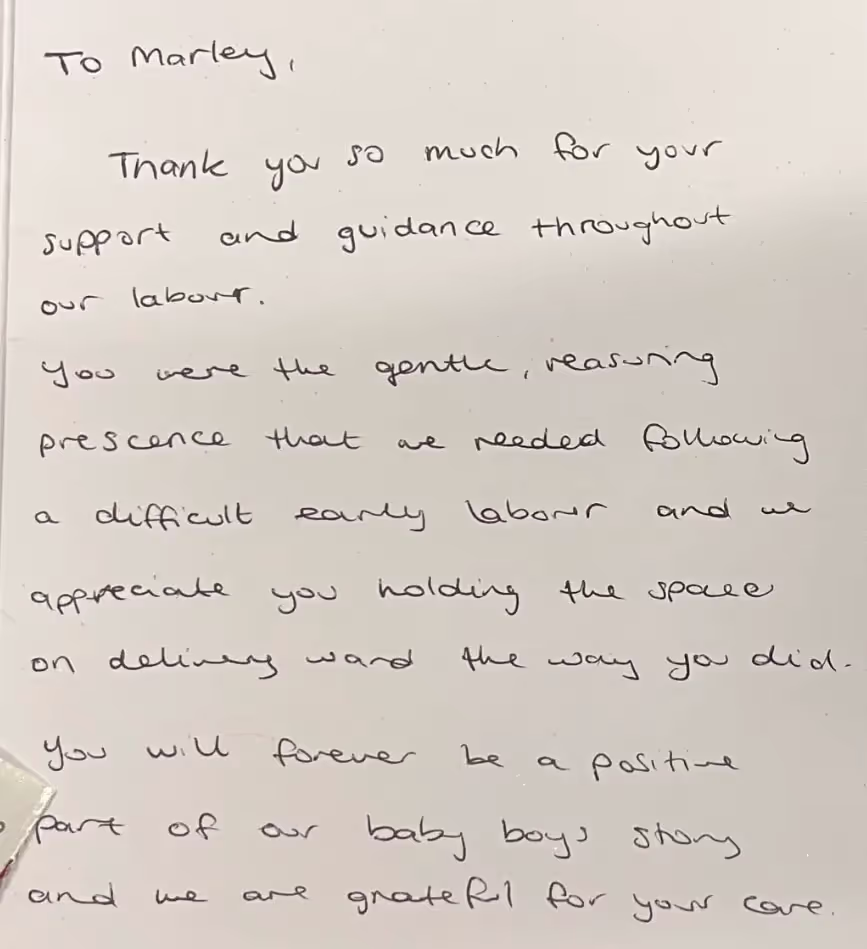 To Marley,
Thank you so much for your
support and guidance throughout
our labour.
You were the gentle, reasuring
prescence that we needed following
a difficult early labour and we
appreciate you holding the space
on delivery ward the way you did.
You will forever be a positive
part of our baby boys story
and we are grateful for your care.